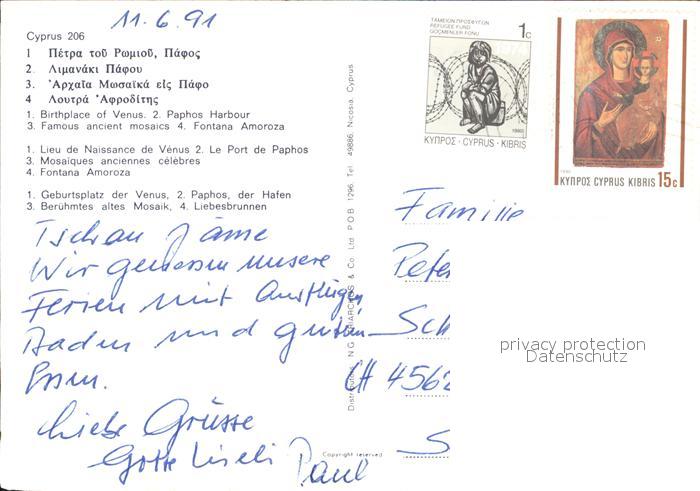 11.6.91
Cyprus 206
1 Πέτρα τοῦ Ρωμιοῦ, Πάφος
2. Λιμανάκι Πάφου
3. Ἀρχαῖα Μωσαϊκά εἰς Πάφο
4 Λουτρά Ἀφροδίτης
1. Birthplace of Venus. 2. Paphos Harbour
3. Famous ancient mosaics 4. Fontana Amoroza
1. Lieu de Naissance de Vénus 2. Le Port de Paphos
3. Mosaïques anciennes célèbres
4. Fontana Amoroza
1. Geburtsplatz der Venus, 2. Paphos, der Hafen
3. Berühmtes altes Mosaik, 4. Liebesbrunnen
Tschau
Wir geniessen unsere
Ferien mit Ausflügen
Baden und gutem
Essen.
Liebe Grüsse
Gotte Liseli Paul
& Co. Ltd. P.O.B. 1296 Tel. 49886, Nicosia, Cyprus
Copyright reserved
ΤΑΜΕΙΟΝ ΠΡΟΣΦΥΓΩΝ
REFUGEE FUND
GÖÇMENLER FONU
1c
1990
ΚΥΠΡΟΣ · CYPRUS · KIBRIS
ΚΥΠΡΟΣ CYPRUS KIBRIS 15c
Familie
Peter
Sch
CH 4562
S
privacy protection
Datenschutz